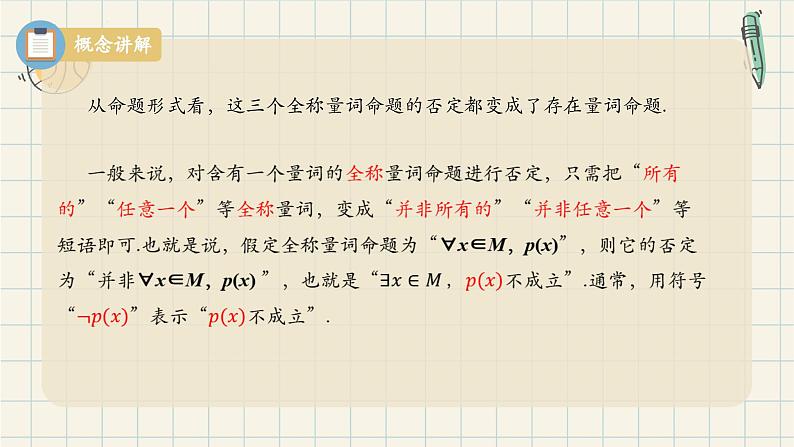 概念讲解
从命题形式看，这三个全称量词命题的否定都变成了存在量词命题.
一般来说，对含有一个量词的全称量词命题进行否定，只需把“所有
的”“任意一个”等全称量词，变成“并非所有的”“并非任意一个”等
短语即可.也就是说，假定全称量词命题为“∀x∈M，p(x)”，则它的否定
为“并非∀x∈M，p(x) ”，也就是“∃x∈M，p(x)不成立”.通常，用符号
“¬p(x)”表示“p(x)不成立”.